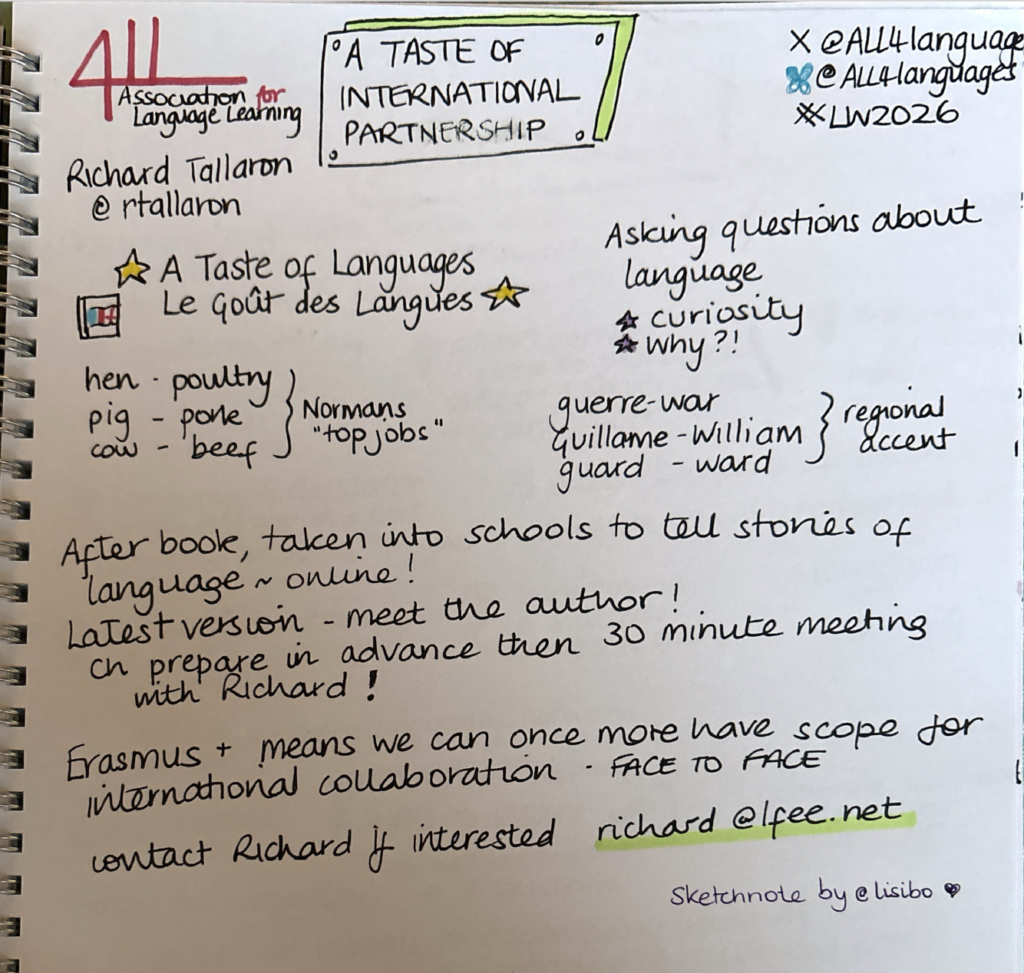 ALL
Association for
Language Learning
A TASTE OF
INTERNATIONAL
PARTNERSHIP
X @ALL4language
@ALL4languages
#LW2026
Richard Tallaron
@rtallaron
A Taste of Languages
Le Goût des Langues
Asking questions about
language
curiosity
why?!
hen - poultry
pig - pork
cow - beef
Normans
"top jobs"
guerre-war
Guillame-William
guard - ward
regional
accent
After book, taken into schools to tell stories of
language ~ online!
Latest version - meet the author!
ch prepare in advance then 30 minute meeting
with Richard!
Erasmus + means we can once more have scope for
international collaboration - FACE TO FACE
contact Richard if interested richard@lfee.net
Sketchnote by @lisibo